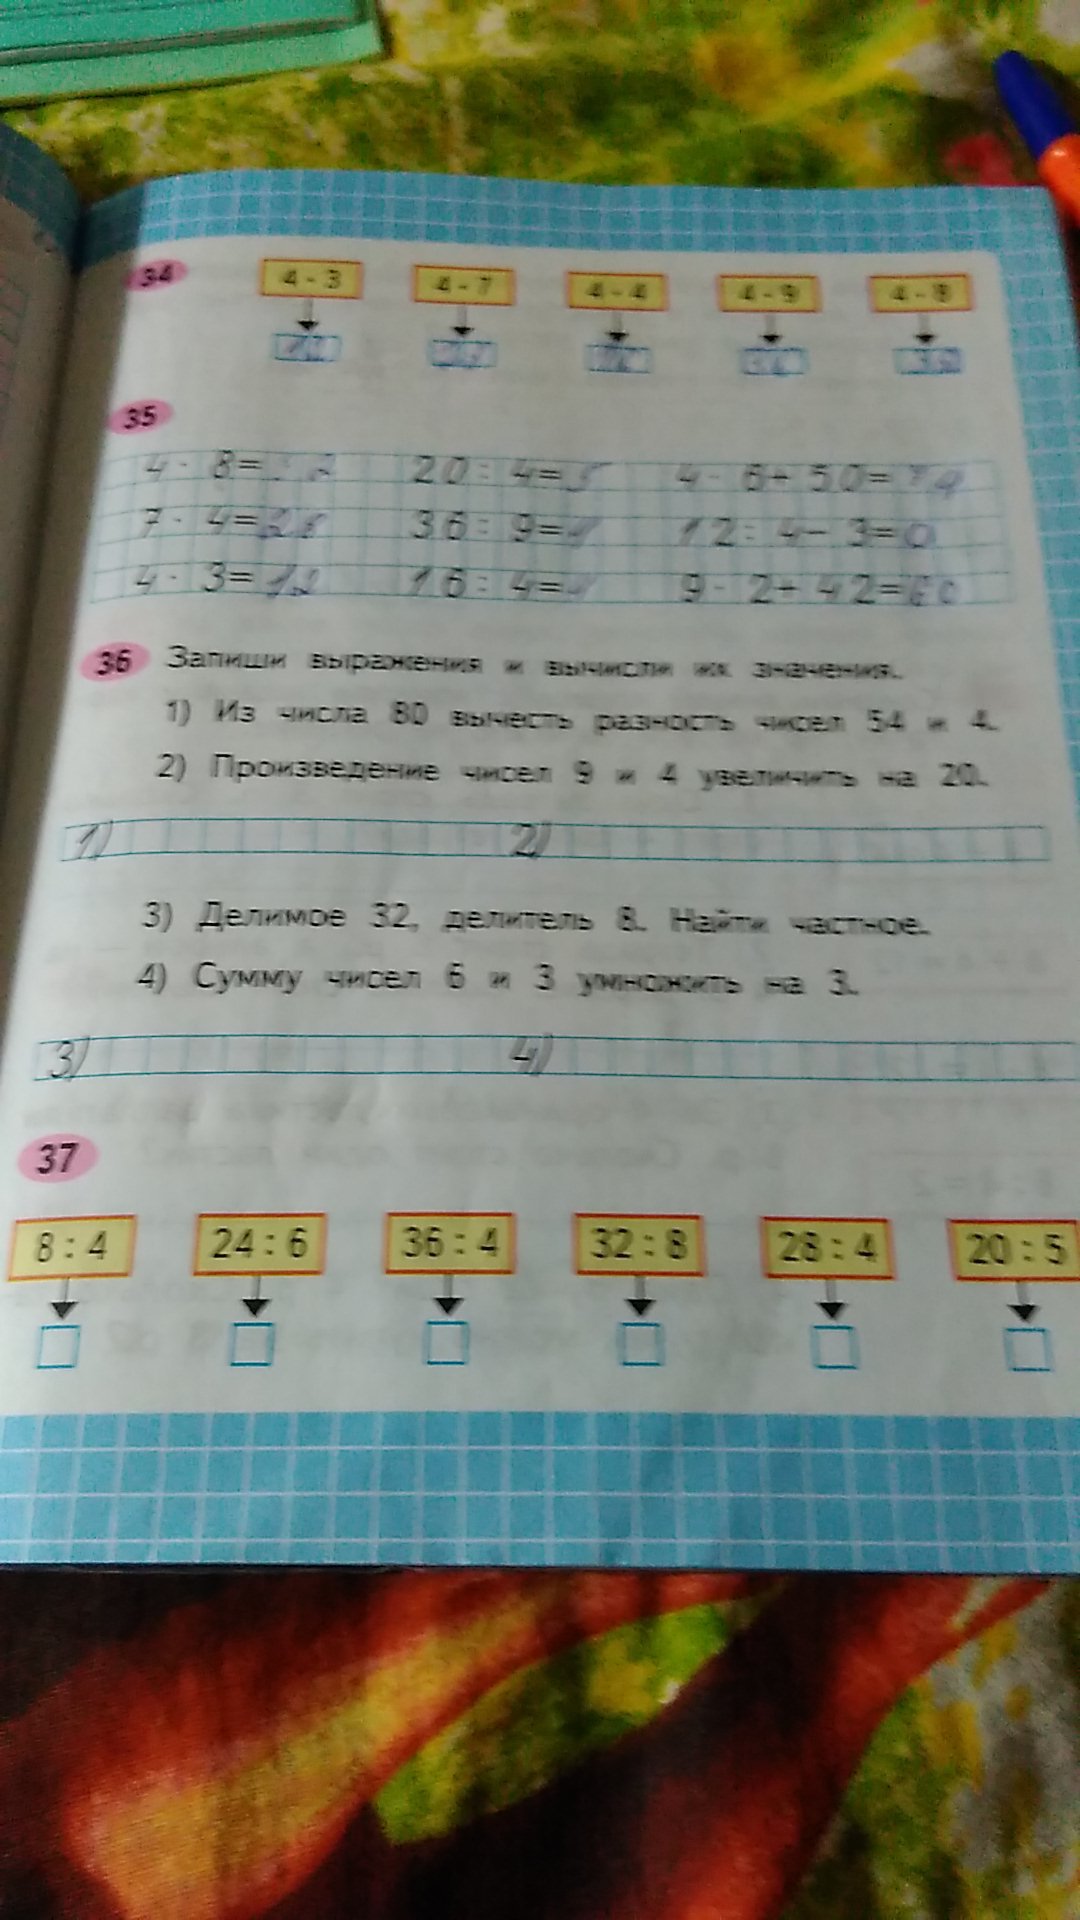 34 4 · 3 4 · 7 4 · 4 4 · 9 4 · 8
35
4 · 8=32 20 : 4=5 4 · 6+ 50=74
7 · 4=28 36 : 9=4 12 : 4− 3=0
4 · 3=12 16 : 4=4 9 · 2+ 42=60
36 Запиши выражения и вычисли их значения.
1) Из числа 80 вычесть разность чисел 54 и 4.
2) Произведение чисел 9 и 4 увеличить на 20.
1) 2)
3) Делимое 32, делитель 8. Найти частное.
4) Сумму чисел 6 и 3 умножить на 3.
3) 4)
37
8 : 4 24 : 6 36 : 4 32 : 8 28 : 4 20 : 5